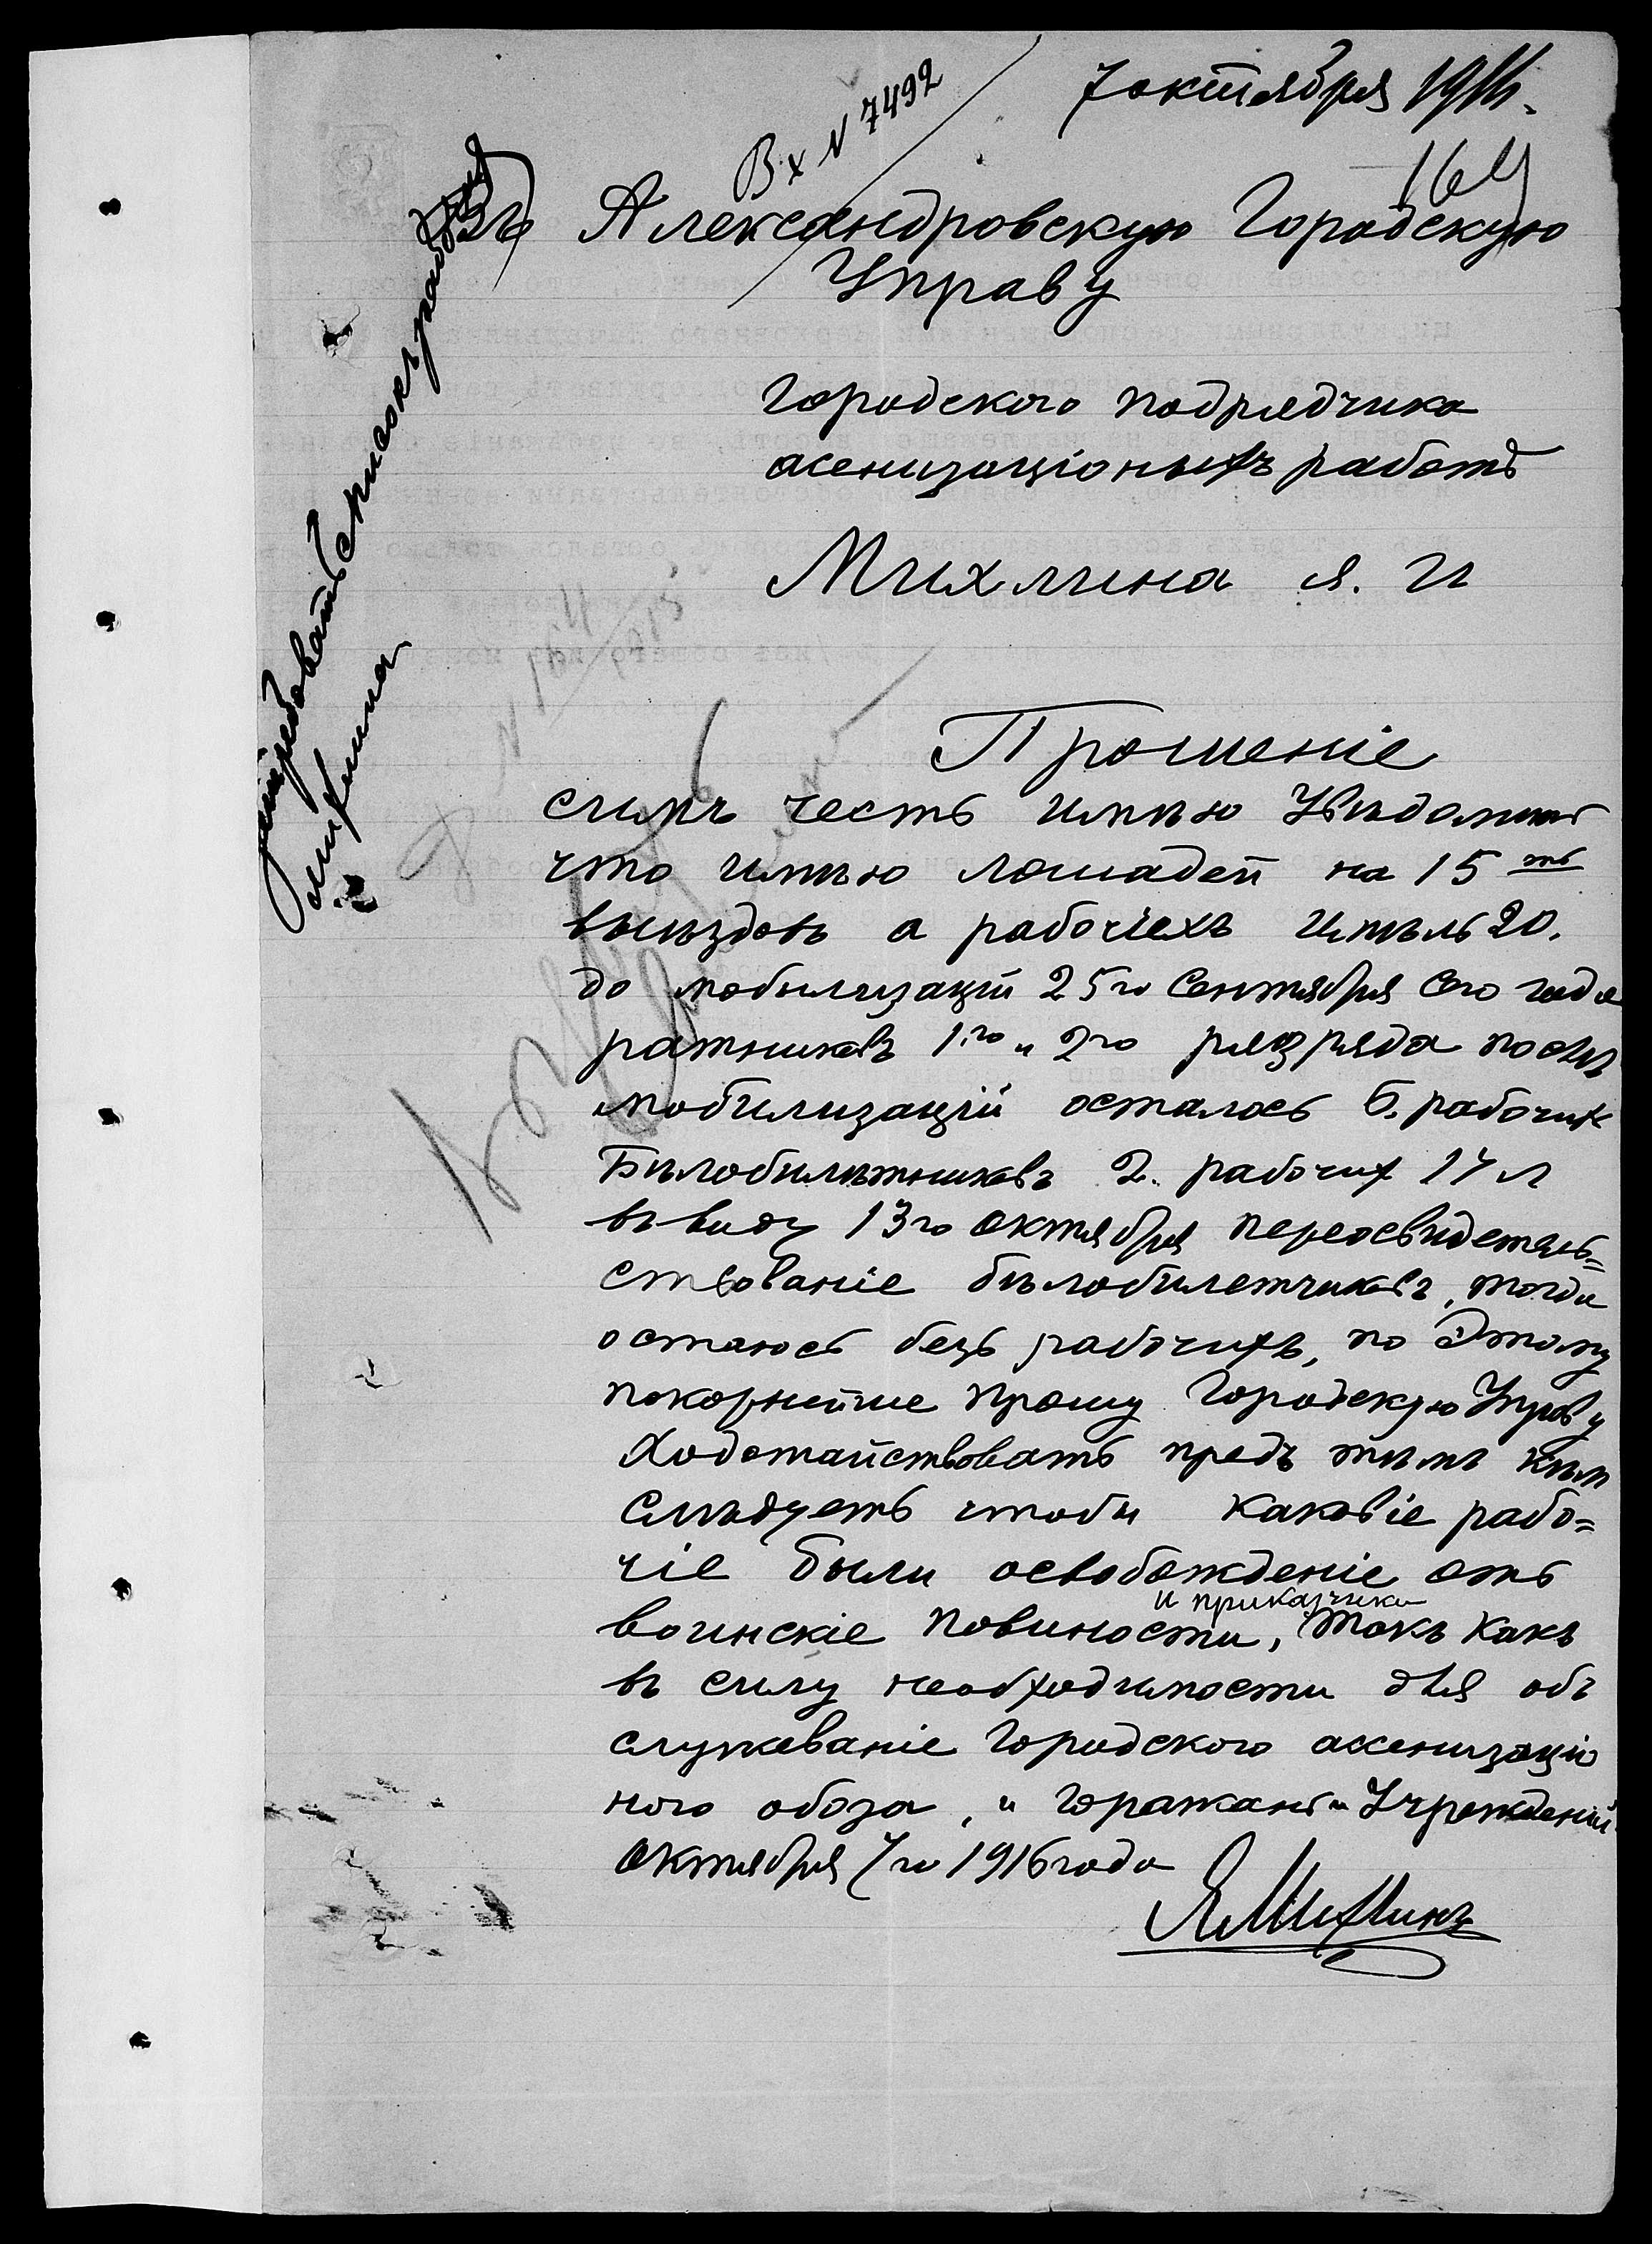 7 октября 1916.
Вх N 7492
164
Въ Александровскую Городскую
Управу
Городского подрядчика
асенизаціоныхъ работъ
Михлина Я. И
Прошеніе
симъ честь имѣю Увѣдомить
что имѣю лошадей на 15 ть
выѣздовъ а рабочіехъ имѣлъ 20.
до мобилизаціи 25го Сентября сего года
ратниковъ 1го и 2го разряда послѣ
мобилизацій осталось 6. рабочих
Бѣлобилѣтниковъ 2. рабочих 17 л
въ виду 13го октября переосвидетель=
ствованіе бѣлобилетчиковъ, тогда
остаюсь безъ рабочихъ, по Этому
покорнейше прошу Городскую Управу
Ходотайствовать предъ тѣмъ кѣм
Слѣдуетъ чтобы каковіе рабо=
чіе были освобожденіе отъ
и приказчика
воинскіе повиности, Такъ какъ
въ силу необходимости для объ
служеваніе Городского ассенизаціо
ного обоза, и горажанъ и Учрежденій
Октября 7го 1916 года
ЯМихлинъ
затребовать списокъ рабочихъ
Михлина
N 164
1915